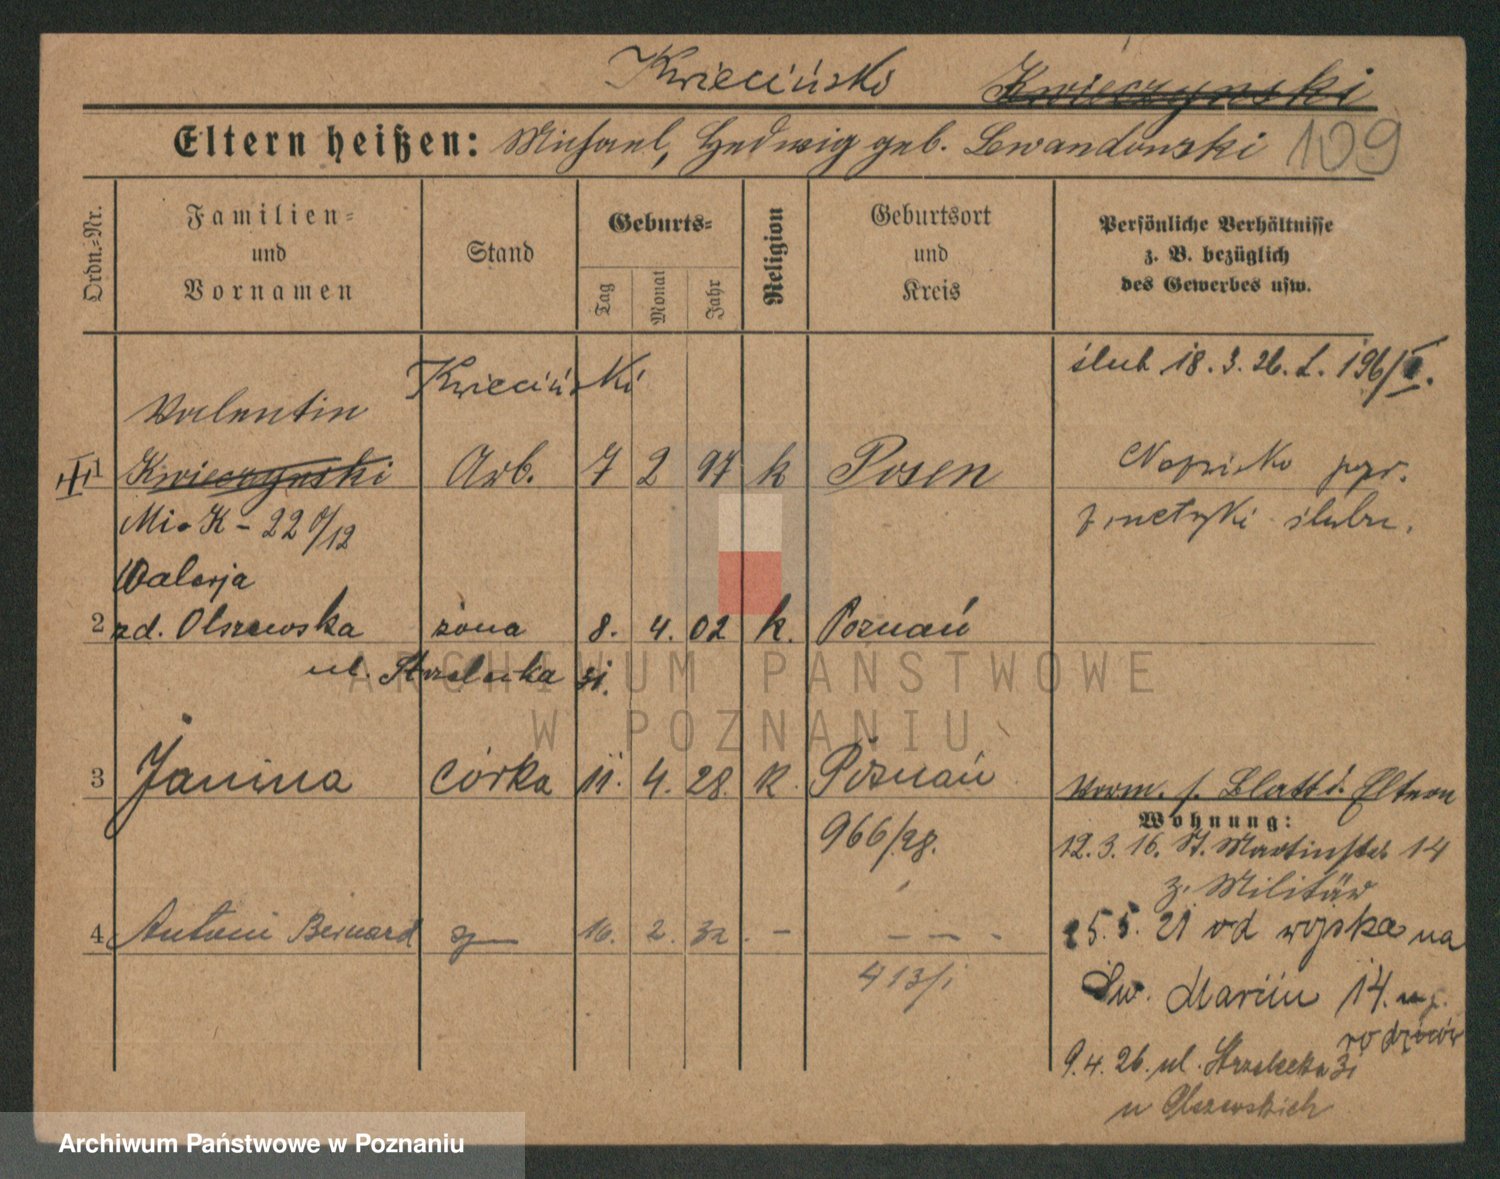 Kwieciński Kwieczynski
Eltern heißen: Michael, Hedwig geb. Lewandowski 109
Ordn.=Nr.
Familien=
und
Vornamen
Stand
Geburts=
Tag
Monat
Jahr
Religion
Geburtsort
und
Kreis
Persönliche Verhältnisse
z. B. bezüglich
des Gewerbes usw.
ślub 18. 3. 26. L. 196/I.
Kwieciński
Valentin
1 Kwieczynski Arb. 7 2 97 k Posen
Nazwisko popr.
z metryki ślubu.
Mi. K - 22 9/12
Walerja
2 zd. Olszewska żona 8. 4. 02 k. Poznań
ul. Strzelecka 31.
3 Janina córka 11. 4. 28. k. Poznań
966/28.
4 Antoni Bernard 16. 2. 32. - - - -
413/
Vorm. s. Blatt d. Eltern
Wohnung:
12. 3. 16. St. Martinstr. 14
z. Militär
25. 5. 21 od wojska na
Św. Marcin 14.
rodziców
9. 4. 26. ul. Strzelecka 31
u Olszewskich
ARCHIWUM PAŃSTWOWE
W POZNANIU
Archiwum Państwowe w Poznaniu